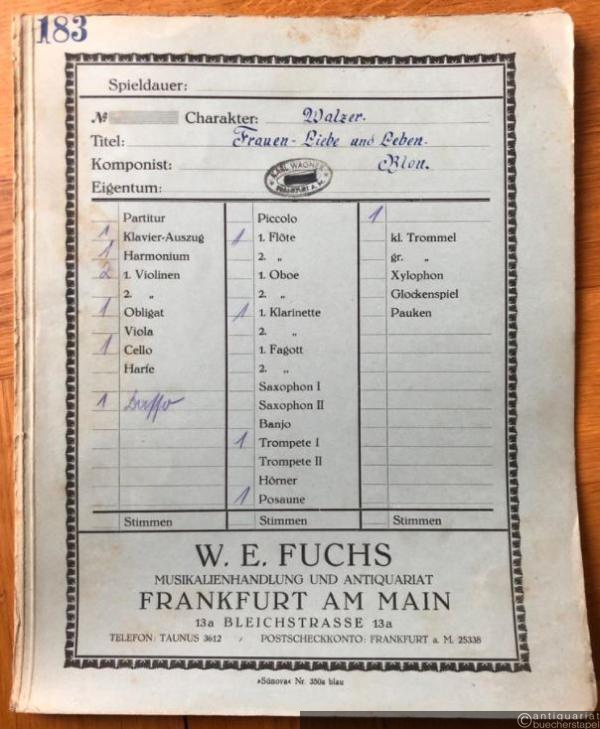 183
Spieldauer:
№ Charakter: Walzer.
Titel: Frauen-Liebe und Leben.
Komponist: Blon.
KARL WAGNER
FRANKFURT A. M.
Eigentum:
Partitur
1 Klavier-Auszug
1 Harmonium
2 1. Violinen
2. „
1 Obligat
Viola
1 Cello
Harfe
1
Stimmen
Piccolo
1 1. Flöte
2. „
1. Oboe
2. „
1 1. Klarinette
2. „
1. Fagott
2. „
Saxophon I
Saxophon II
Banjo
1 Trompete I
Trompete II
Hörner
1 Posaune
Stimmen
1
kl. Trommel
gr. „
Xylophon
Glockenspiel
Pauken
Stimmen
W. E. FUCHS
MUSIKALIENHANDLUNG UND ANTIQUARIAT
FRANKFURT AM MAIN
13a BLEICHSTRASSE 13a
TELEFON: TAUNUS 3612 / POSTSCHECKKONTO: FRANKFURT a. M. 25338
»Sünova« Nr. 350a blau
antiquariat
buecherstapel